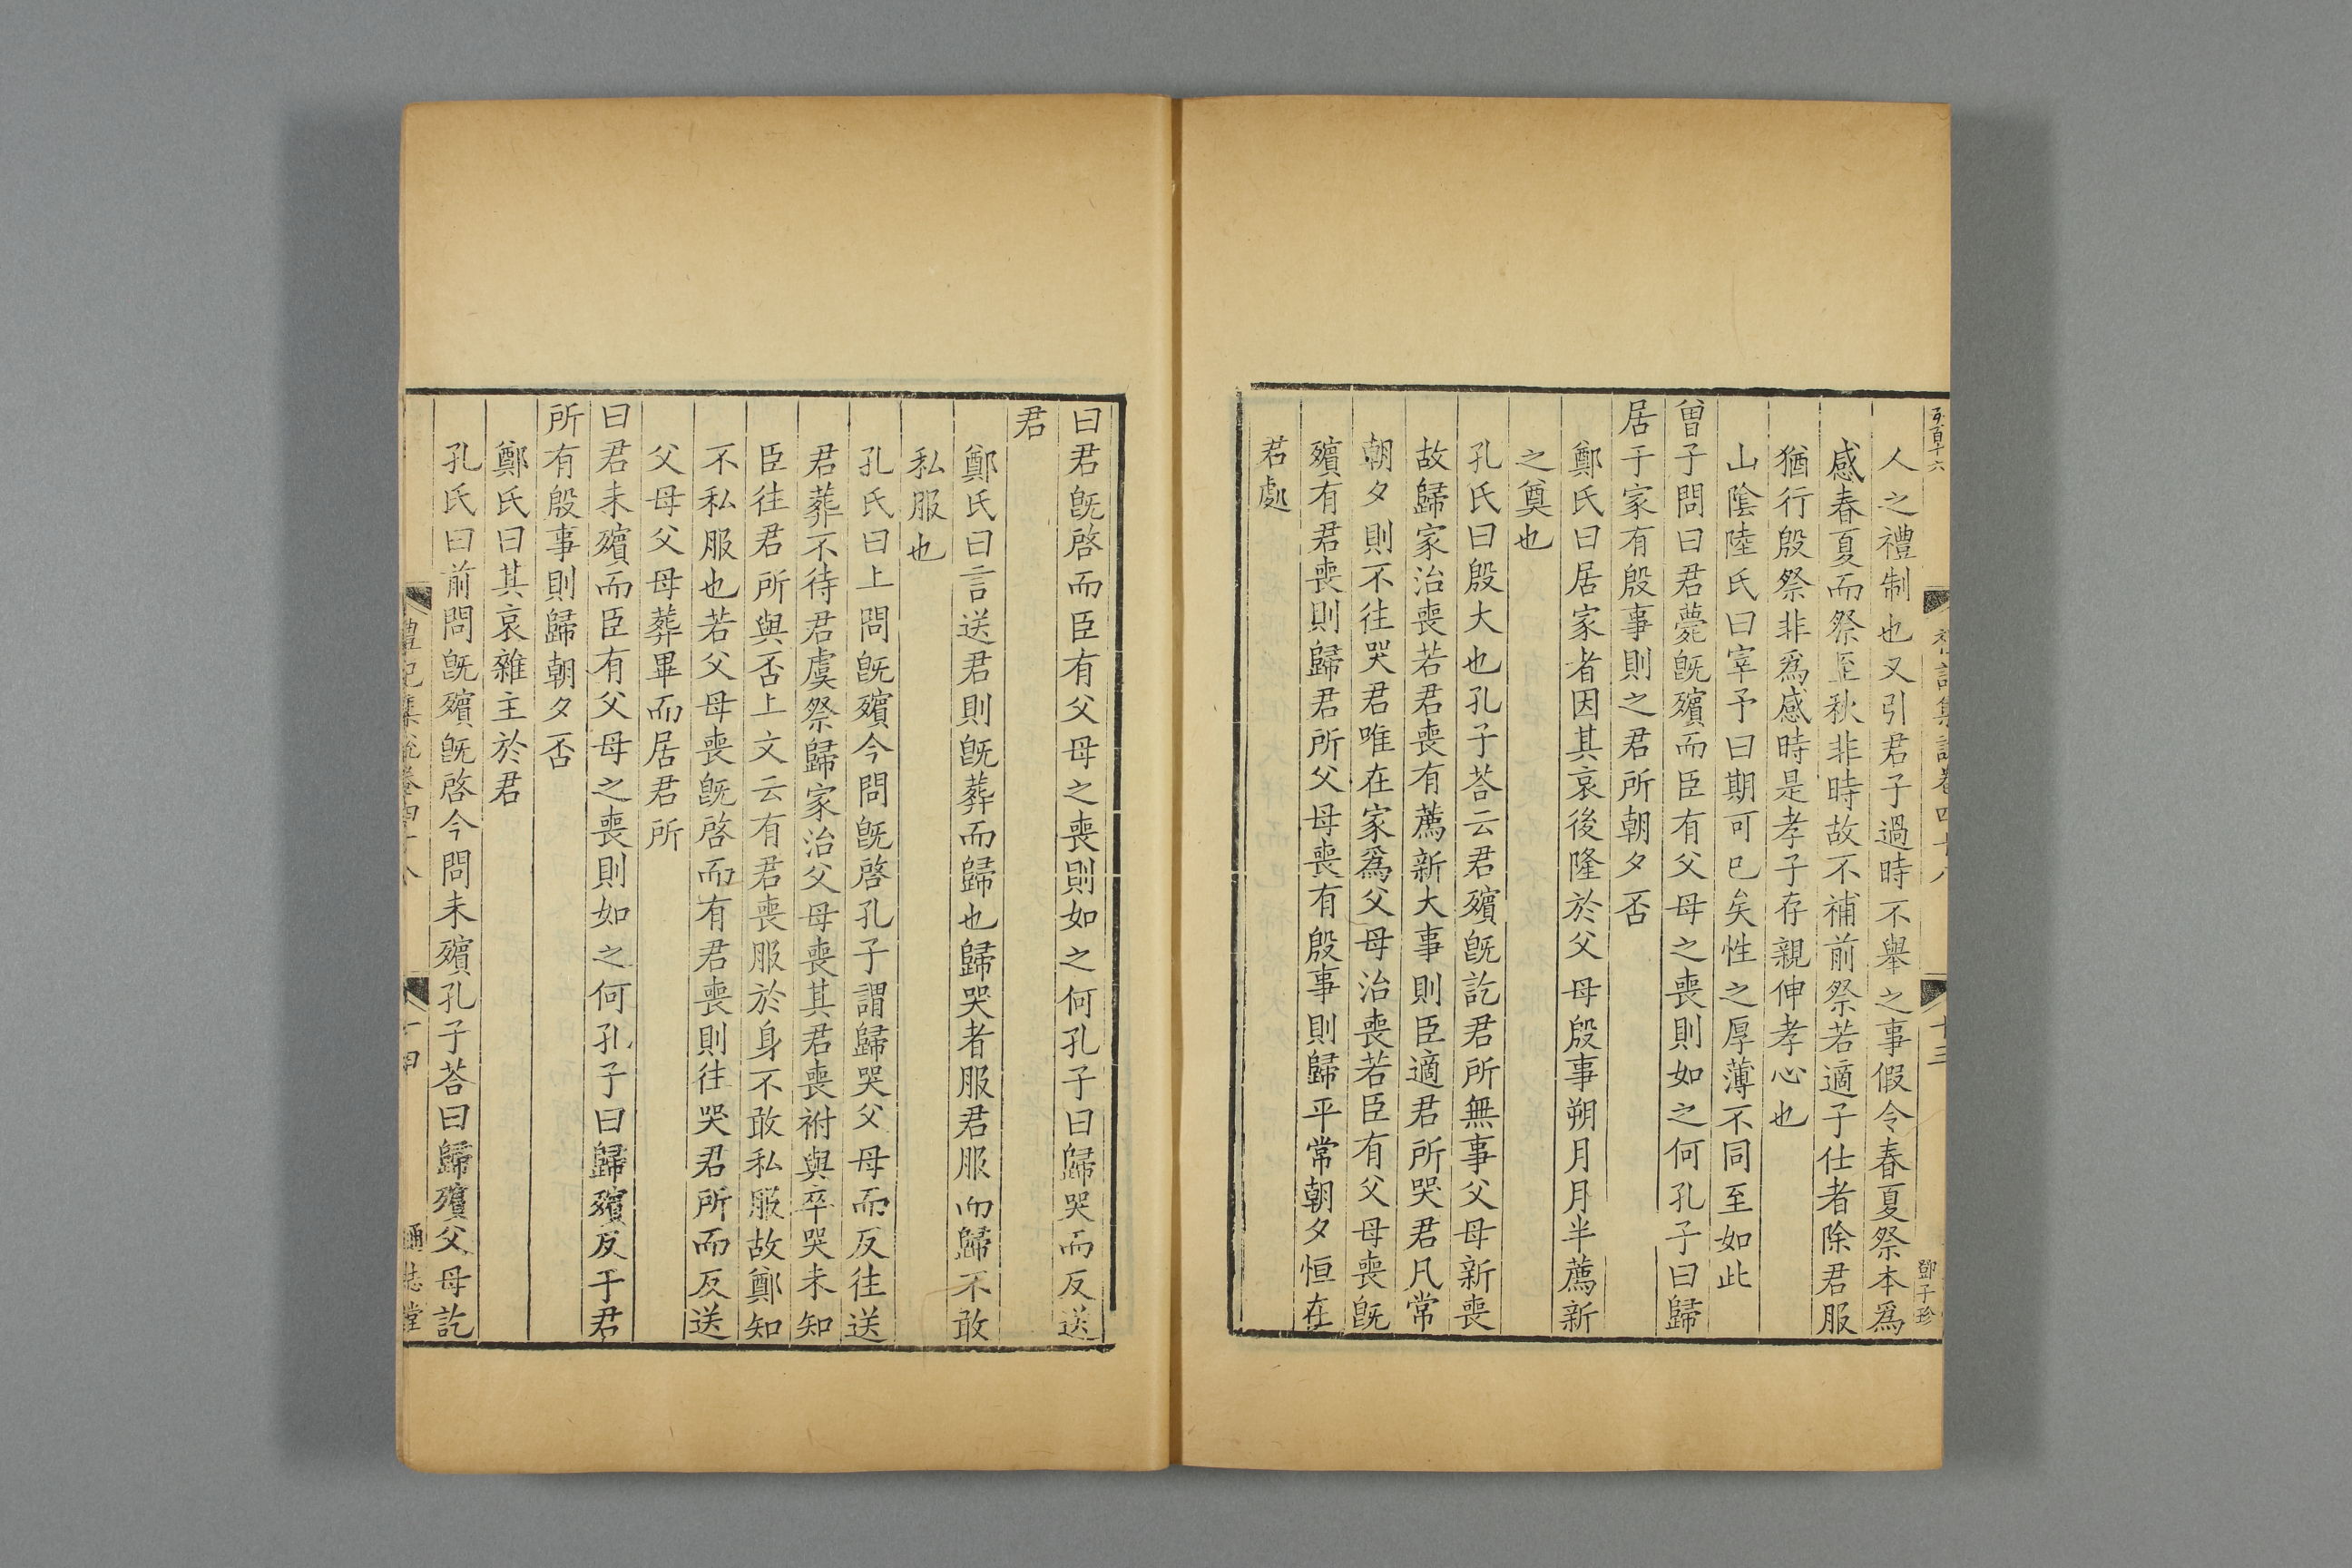 人之禮制也又引君子過時不舉之事假令春夏祭本爲
感春夏而祭至秋非時故不補前祭若適子仕者除君服
猶行殷祭非爲感時是孝子存親伸孝心也
山陰陸氏曰宰予曰期可巳矣性之厚薄不同至如此
曾子問曰君薨旣殯而臣有父母之喪則如之何孔子曰歸
居于家有殷事則之君所朝夕否
鄭氏曰居家者因其哀後隆於父母殷事朔月月半薦新
之奠也
孔氏曰殷大也孔子荅云君殯旣訖君所無事父母新喪
故歸家治喪若君喪有薦新大事則臣適君所哭君凡常
朝夕則不往哭君唯在家爲父母治喪若臣有父母喪旣
殯有君喪則歸君所父母喪有殷事則歸平常朝夕恒在
君處
十三
鄧子珍
曰君旣啓而臣有父母之喪則如之何孔子曰歸哭而反送
君
鄭氏曰言送君則旣葬而歸也歸哭者服君服而歸不敢
私服也
孔氏曰上問旣殯今問旣啓孔子謂歸哭父母而反往送
君葬不待君虞祭歸家治父母喪其君喪祔與卒哭未知
臣往君所與否上文云有君喪服於身不敢私服故鄭知
不私服也若父母喪旣啓而有君喪則往哭君所而反送
父母父母葬畢而居君所
曰君未殯而臣有父母之喪則如之何孔子曰歸殯反于君
所有殷事則歸朝夕否
鄭氏曰其哀雜主於君
孔氏曰前問旣殯旣啓今問未殯孔子荅曰歸殯父母訖
禮記集說卷四十八
十四
通志堂